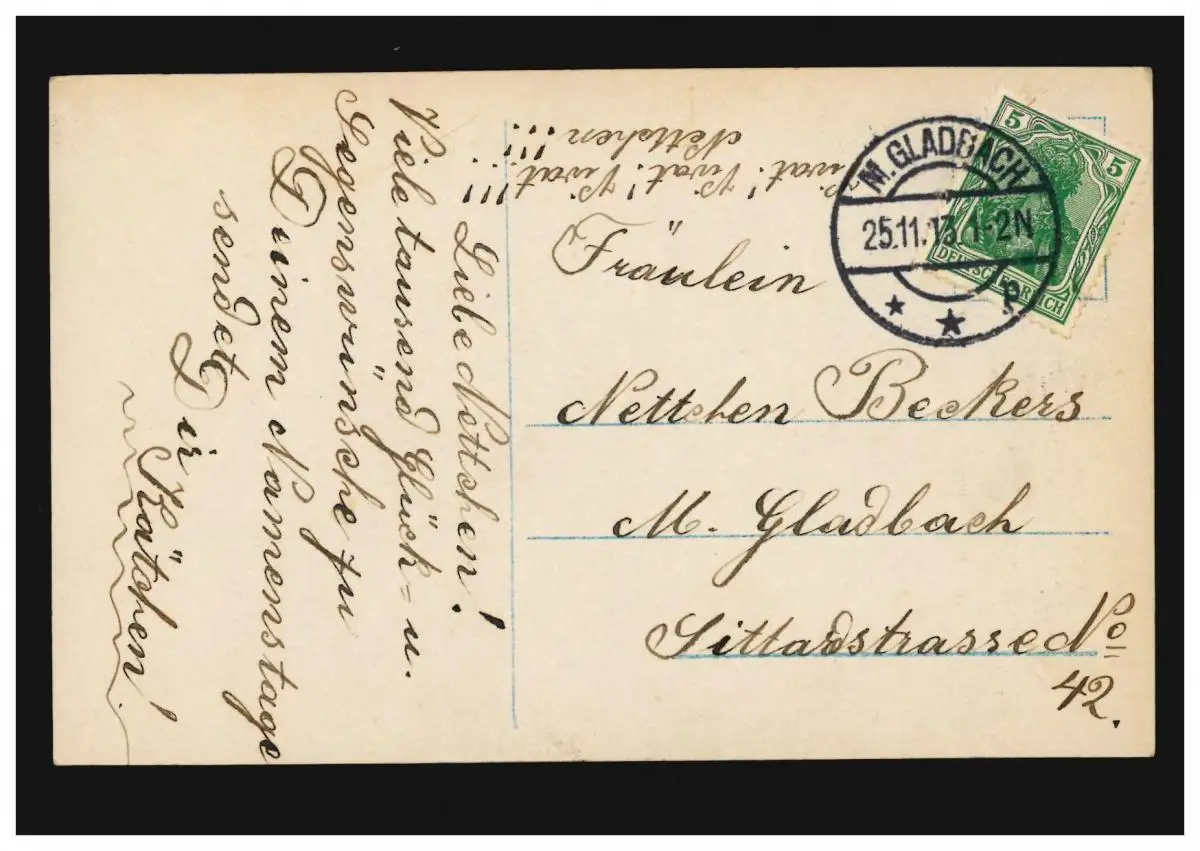 Liebe Nettchen!
Viele tausend Glück= u.
Segenswünsche zu
Deinem Namenstage
sendet
Dir
Kätchen!
Vivat! Vivat! Vivat!!!
Nettchen!!!
Fräulein
Nettchen Beckers
M. Gladbach
Sittardstrasse No
42.
M. GLADBACH
25.11.13 1-2N
5
5
DEUTSCHES REICH